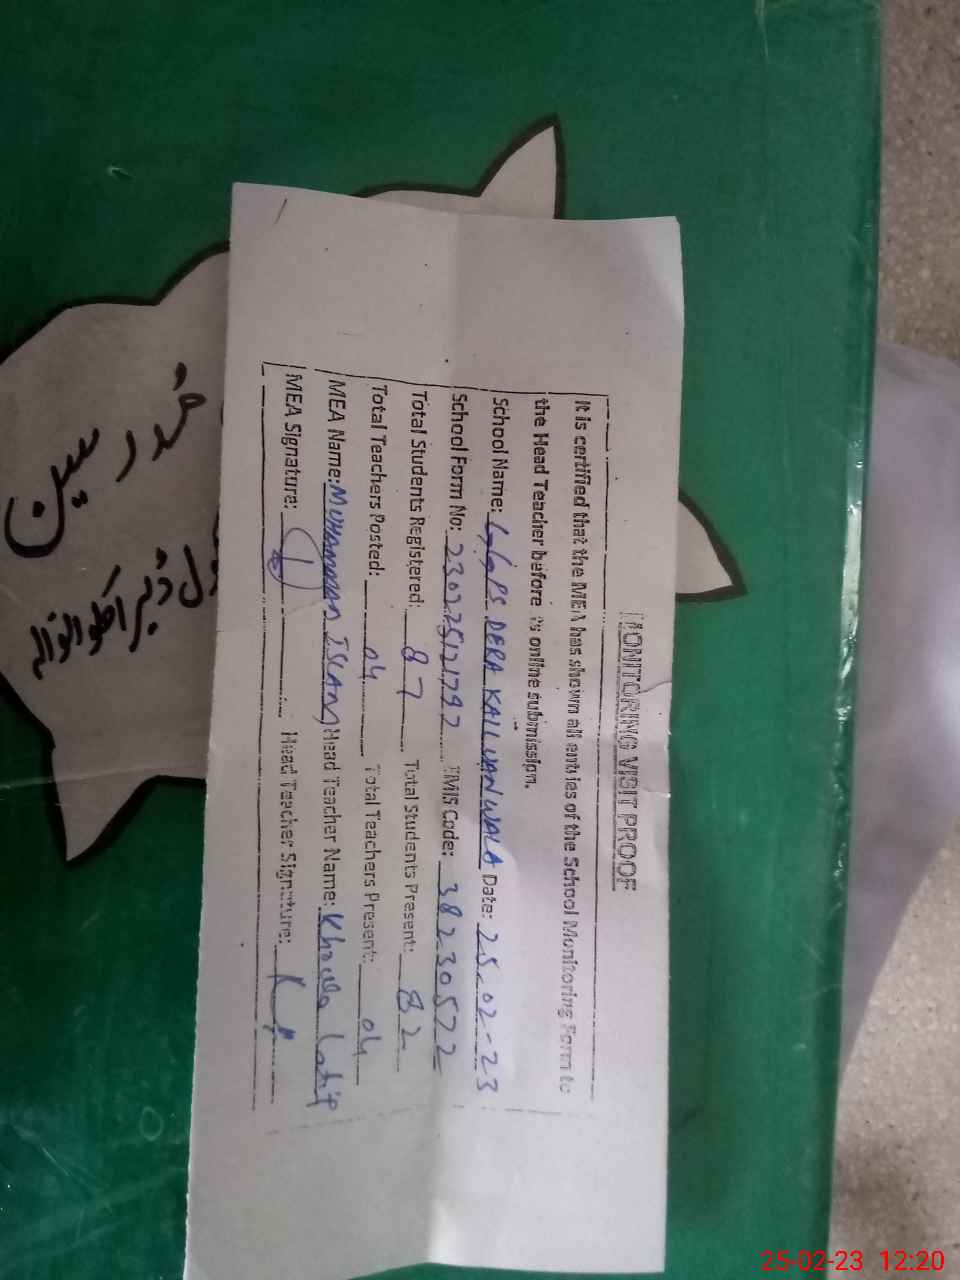 MONITORING VISIT PROOF
It is certified that the MEA has shown all entries of the School Monitoring Form to
the Head Teacher before is online submission.
School Name: GGPS DERA KALLUANWALA Date: 25-02-23
School Form No: 2302251217 EMIS Code: 38230572
Total Students Registered: 87 Total Students Present: 82
Total Teachers Posted: 04 Total Teachers Present: 04
MEA Name: MUHAMMAD ISLAM Head Teacher Name: Khoula Latif
MEA Signature: Head Teacher Signature:
مدرسین
25-02-23 12:20